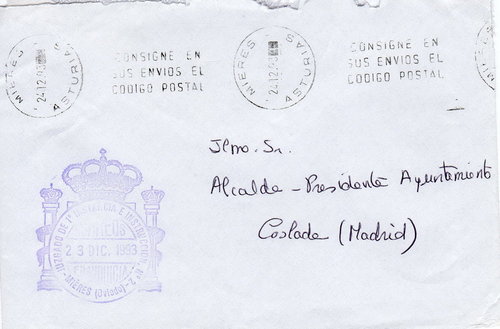 MIERES
24.12.93
ASTURIAS
CONSIGNE EN
SUS ENVIOS EL
CODIGO POSTAL
MIERES
24.12.93
ASTURIAS
CONSIGNE EN
SUS ENVIOS EL
CODIGO POSTAL
Ilmo. Sr.
Alcalde-Presidente Ayuntamiento
Coslada (Madrid)
JUZGADO DE 1ª INSTANCIA E INSTRUCCION Nº 2
CORREOS
23 DIC. 1993
FRANQUICIA
MIERES (Oviedo)